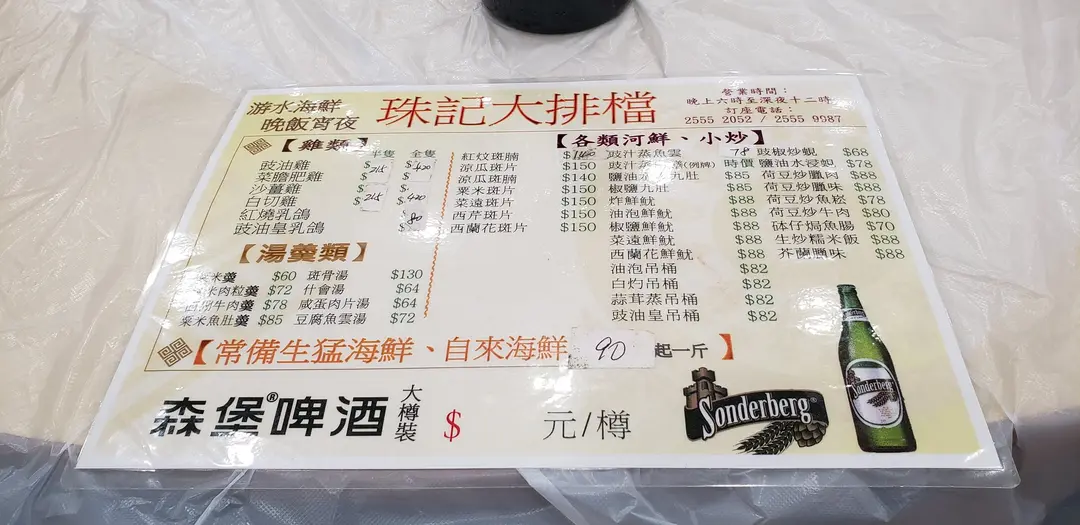 游水海鮮
晚飯宵夜
珠記大排檔
營業時間：
晚上六時至深夜十二時
訂座電話：
2555 2052 / 2555 9987
【雞類】
半隻 全隻
豉油雞 $245 $420
菜膽肥雞
沙薑雞
白切雞 $245 $420
紅燒乳鴿 $80
豉油皇乳鴿
紅炆斑腩
涼瓜斑片 $150
涼瓜斑腩 $140
粟米斑片 $150
菜遠斑片 $150
西芹斑片 $150
西蘭花斑片 $150
【湯羹類】
粟米羹 $60 斑骨湯 $130
肉粒羹 $72 什會湯 $64
牛肉羹 $78 咸蛋肉片湯 $64
粟米魚肚羹 $85 豆腐魚雲湯 $72
【各類河鮮、小炒】
豉汁蒸魚雲 78
豉汁 (例牌) 時價
鹽油 九肚 $85
椒鹽九肚 $85
炸鮮魷 $88
油泡鮮魷 $88
椒鹽鮮魷 $88
菜遠鮮魷 $88
西蘭花鮮魷 $88
油泡吊桶 $82
白灼吊桶 $82
蒜茸蒸吊桶 $82
豉油皇吊桶 $82
豉椒炒蜆 $68
鹽油水浸蜆 $78
荷豆炒臘肉 $88
荷豆炒臘味 $88
荷豆炒魚崧 $78
荷豆炒牛肉 $80
砵仔焗魚腸 $70
生炒糯米飯 $88
芥蘭臘味 $88
【常備生猛海鮮、自來海鮮 90 起一斤】
森堡®啤酒 大樽裝 $ 元/樽
Sonderberg®
Sonderberg